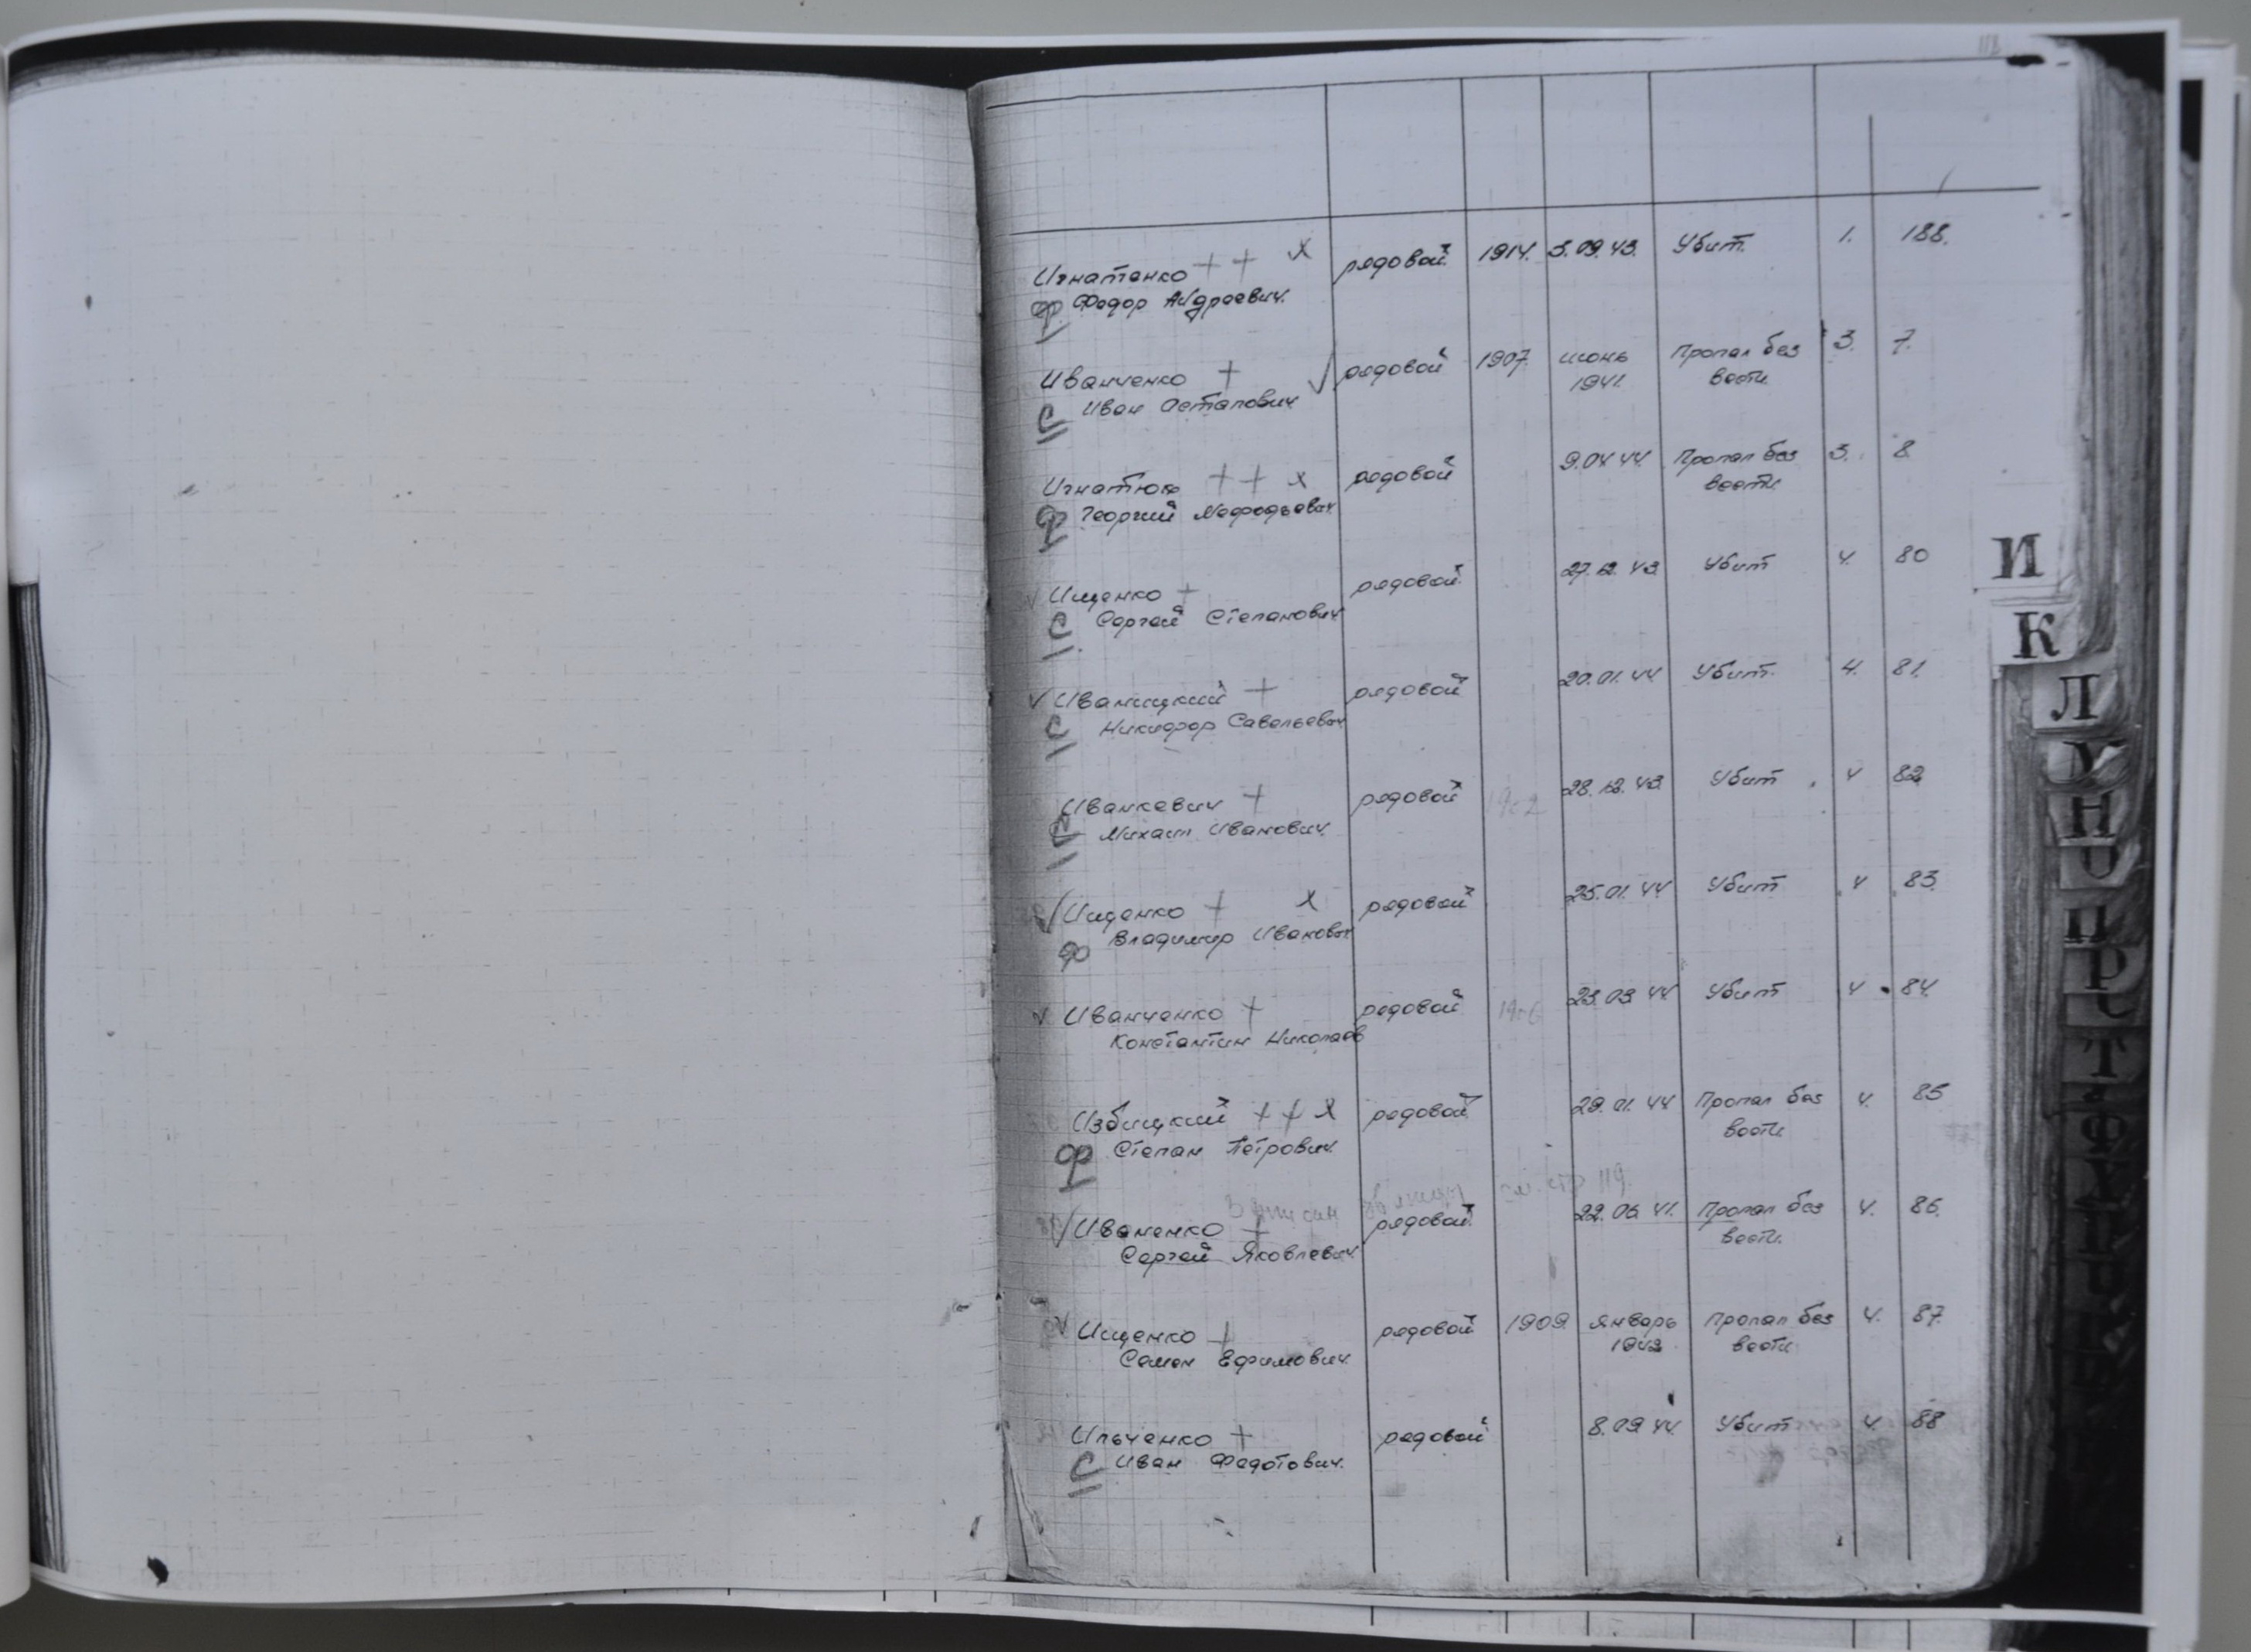 118
Игнатенко ++ х рядовой. 1914. 3.09.43. Убит. 1. 188.
ф Федор Андреевич.
Иванченко + √ рядовой 1907. июнь Пропал без 3. 7.
с Иван Остапович 1941. вести.
Игнатюк ++ х рядовой 9.04.44. Пропал без 3. 8.
ф Георгий Мефодьевич вести.
Ищенко + рядовой. 27.12.43. Убит 4. 80
с Сергей Степанович
√ Иваницкий + рядовой 20.01.44 Убит. 4. 81.
с Никифор Савельевич
Иванкевич + рядовой 28.12.43. Убит 4 82
Михаил Иванович.
√ Ищенко + х рядовой 25.01.44 Убит 4 83.
ф Владимир Иванович
√ Иванченко + рядовой 23.03.44 Убит 4 84.
Константин Николаев
Избицкий ++ х рядовой 29.01.44 Пропал без 4. 85
ф Степан Петрович. вести.
см. стр 119.
√ Иваненко + рядовой. 22.06.41. Пропал без 4. 86.
Сергей Яковлевич вести.
√ Ищенко + рядовой 1909. январь Пропал без 4. 87.
Семен Ефимович. 1943 вести
Ильченко + рядовой 8.09.44. Убит 4. 88
с Иван Федотович.
И
К
Л
Н
О
П
Р
С
Т
Ф